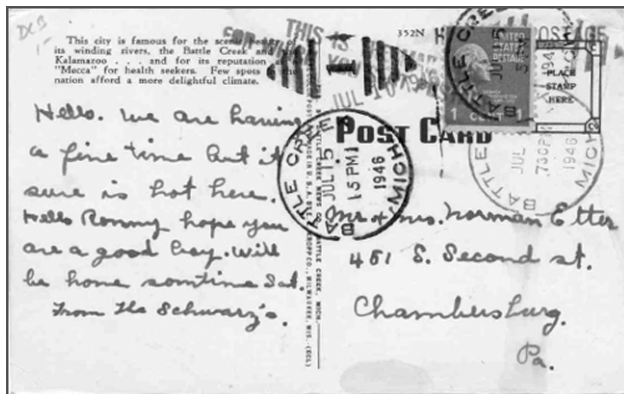 DC3
1-
This city is famous for the scenic
its winding rivers, the Battle Creek and
Kalamazoo . . . and for its reputation as
"Mecca" for health seekers. Few spots
nation afford a more delightful climate.
352N
THIS IS
JUL 10 1946
UNITED STATES
POSTAGE
1 CENT 1
PLACE
STAMP
HERE
BATTLE CREEK
JUL 15
1946
MICH
POST CARD
BATTLE CREEK
JUL 15
15 PM
1946
MICH
BATTLE
JUL
730PM
1946
MICH
Hello. We are having
a fine time but it
sure is hot here.
Hello Ronny hope you
are a good boy. Will
be home somtime Sat.
From the Schwarz's.
Mr & Mrs. Norman Etter
451 S. Second st.
Chambersburg.
Pa.
BATTLE CREEK NEWS CO., BATTLE CREEK, MICH.
MILWAUKEE, WIS.